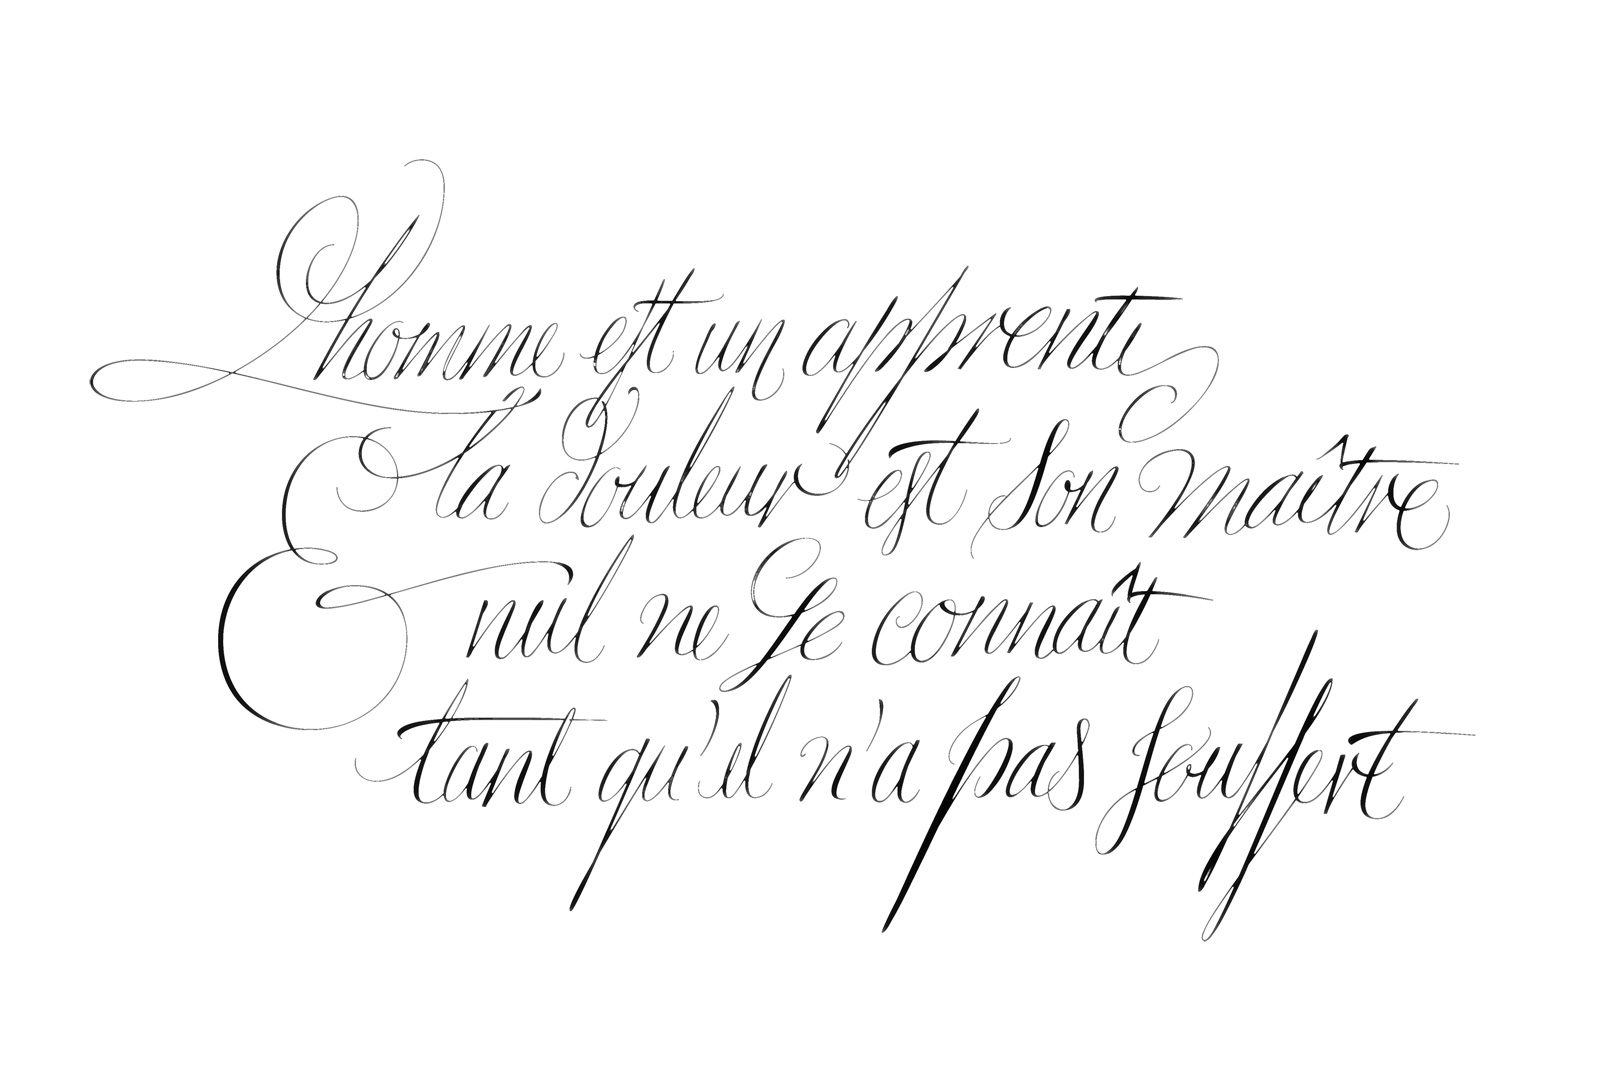 L'homme est un apprenti
la douleur est son maître
E nul ne se connaît
tant qu'il n'a pas souffert